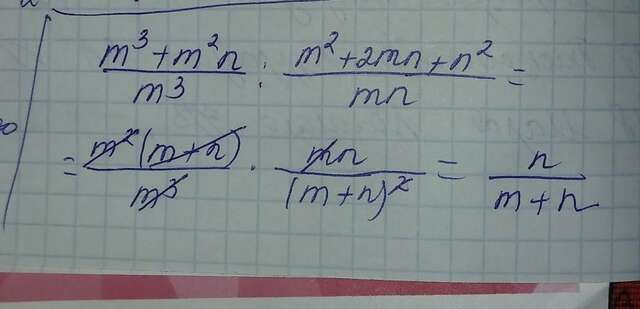 (m³+m²n)/m³ : (m²+2mn+n²)/(mn) =
= (m²(m+n))/m³ · (mn)/((m+n)²) = n/(m+n)